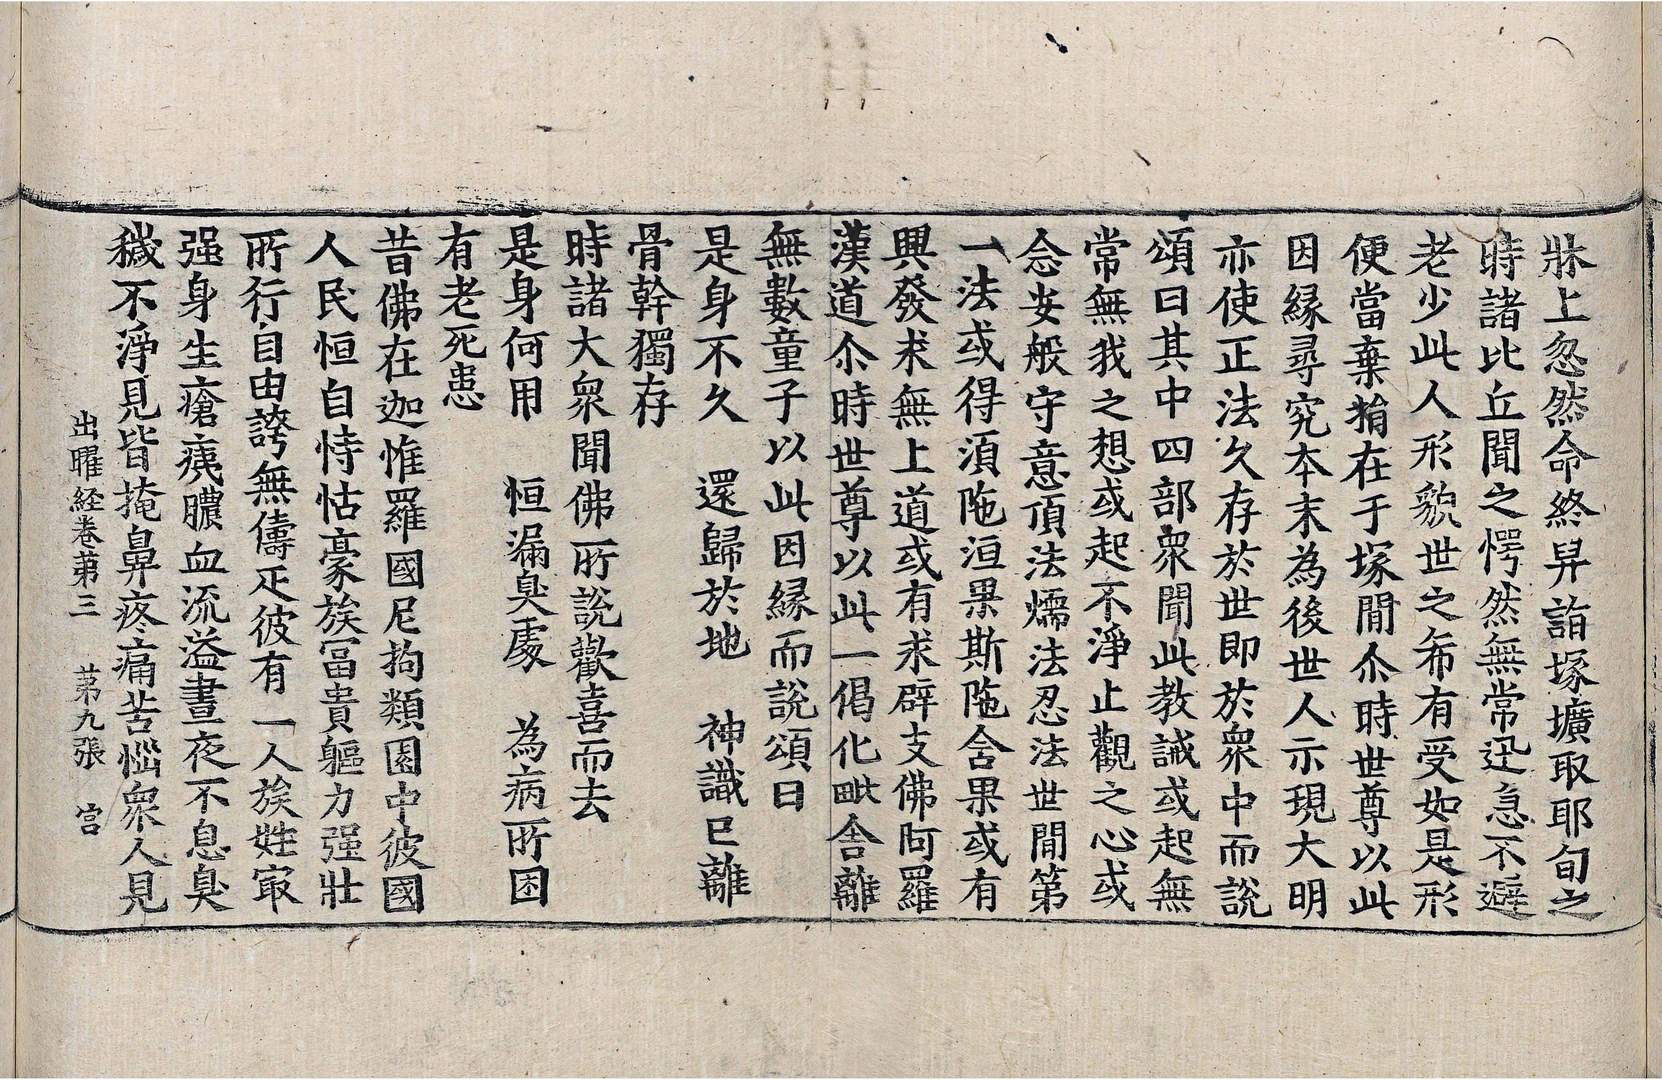 牀上忽然命終舁詣塚壙取耶旬之
時諸比丘聞之愕然無常迅急不避
老少此人形貌世之希有受如是形
便當棄捐在于塚閒尒時世尊以此
因縁尋究夲末為後世人示現大明
亦使正法久存於世即於衆中而說
頌曰其中四部衆聞此教誡或起無
常無我之想或起不淨止觀之心或
念安般守意頂法燸法忍法世閒第
一法或得湏陁洹果斯陁含果或有
興發求無上道或有求辟支佛阿羅
漢道尒時世尊以此一偈化毗舍離
無數童子以此因縁而說頌曰
是身不久　還歸於地　神識已離
骨幹獨存
時諸大衆聞佛所說歡喜而去
是身何用　恒漏臭處　為病所困
有老死患
昔佛在迦惟羅國尼拘類園中彼國
人民恒自恃怙豪族冨貴軀力强壯
所行自由誇無儔疋彼有一人族姓㝡
强身生瘡痍膿血流溢晝夜不息臭
出曜経卷苐三　苐九張　宮
穢不淨見皆掩鼻疼痛苦惱衆人見